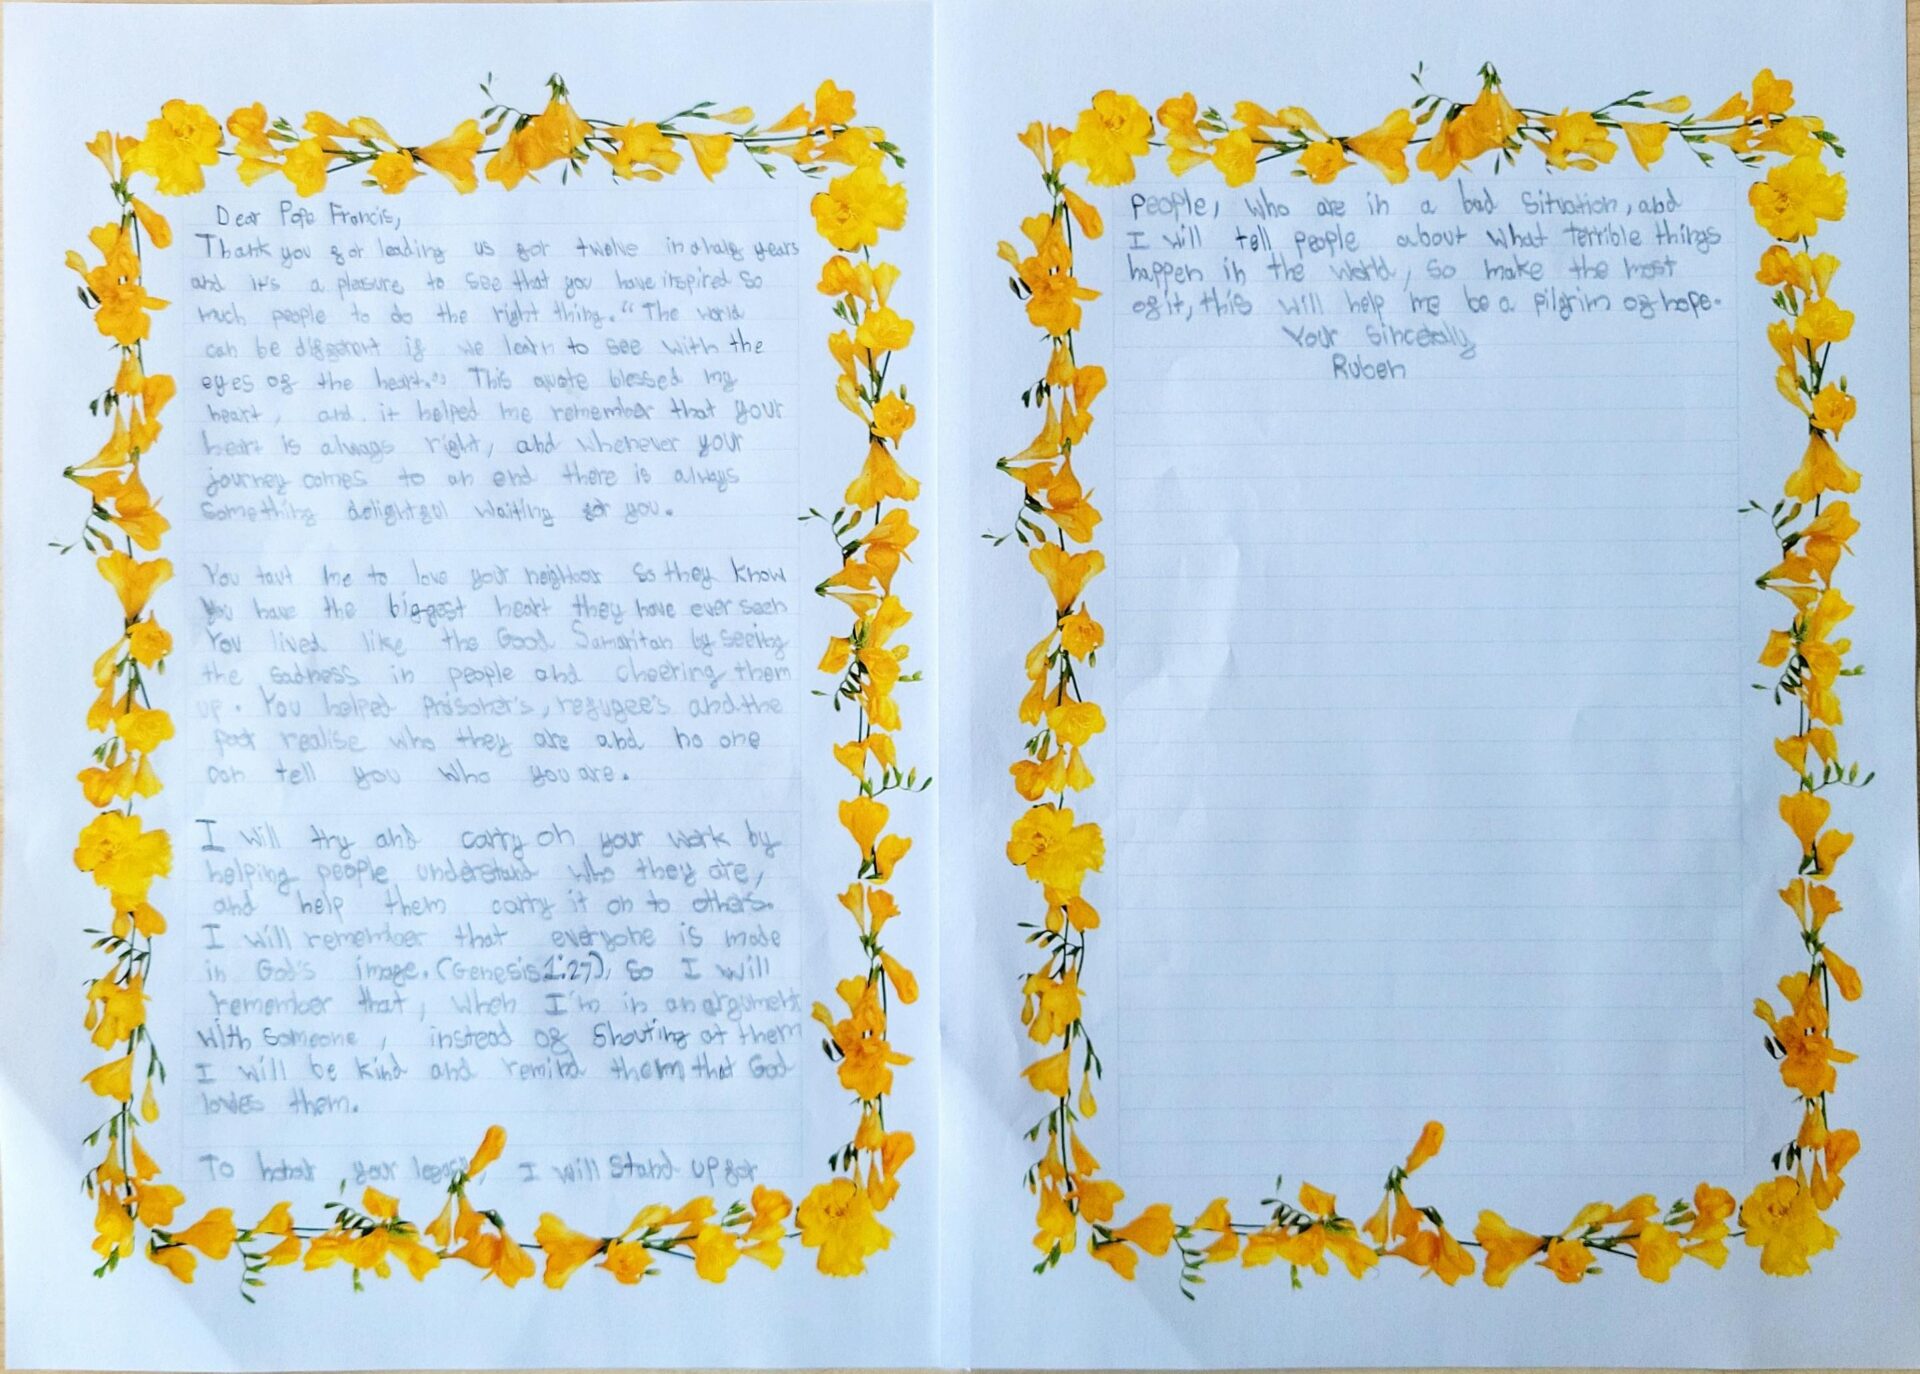 Dear Pope Francis,
Thank you for leading us for twelve in a half years
and it's a pleasure to see that you have inspired so
much people to do the right thing. "The world
can be different if we learn to see with the
eyes of the heart." This quote blessed my
heart, and. it helped me remember that your
heart is always right, and whenever your
journey comes to an end there is always
something delightful waiting for you.
You taut me to love your neighbour so they know
you have the biggest heart they have ever seen
You lived like the Good Samaritan by seeing
the sadness in people and cheering them
up. You helped Prisoner's, refugee's and the
poor realise who they are and no one
can tell you who you are.
I will try and carry on your work by
helping people understand who they are,
and help them carry it on to others.
I will remember that everyone is made
in God's image. (Genesis 1:27), so I will
remember that, when I'm in an argument
with someone, instead of shouting at them
I will be kind and remind them that God
loves them.
To honour your legacy, I will stand up for
people, who are in a bad situation, and
I will tell people about what terrible things
happen in the world, so make the most
of it, this will help me be a pilgrim of hope.
Your Sincerely
Ruben